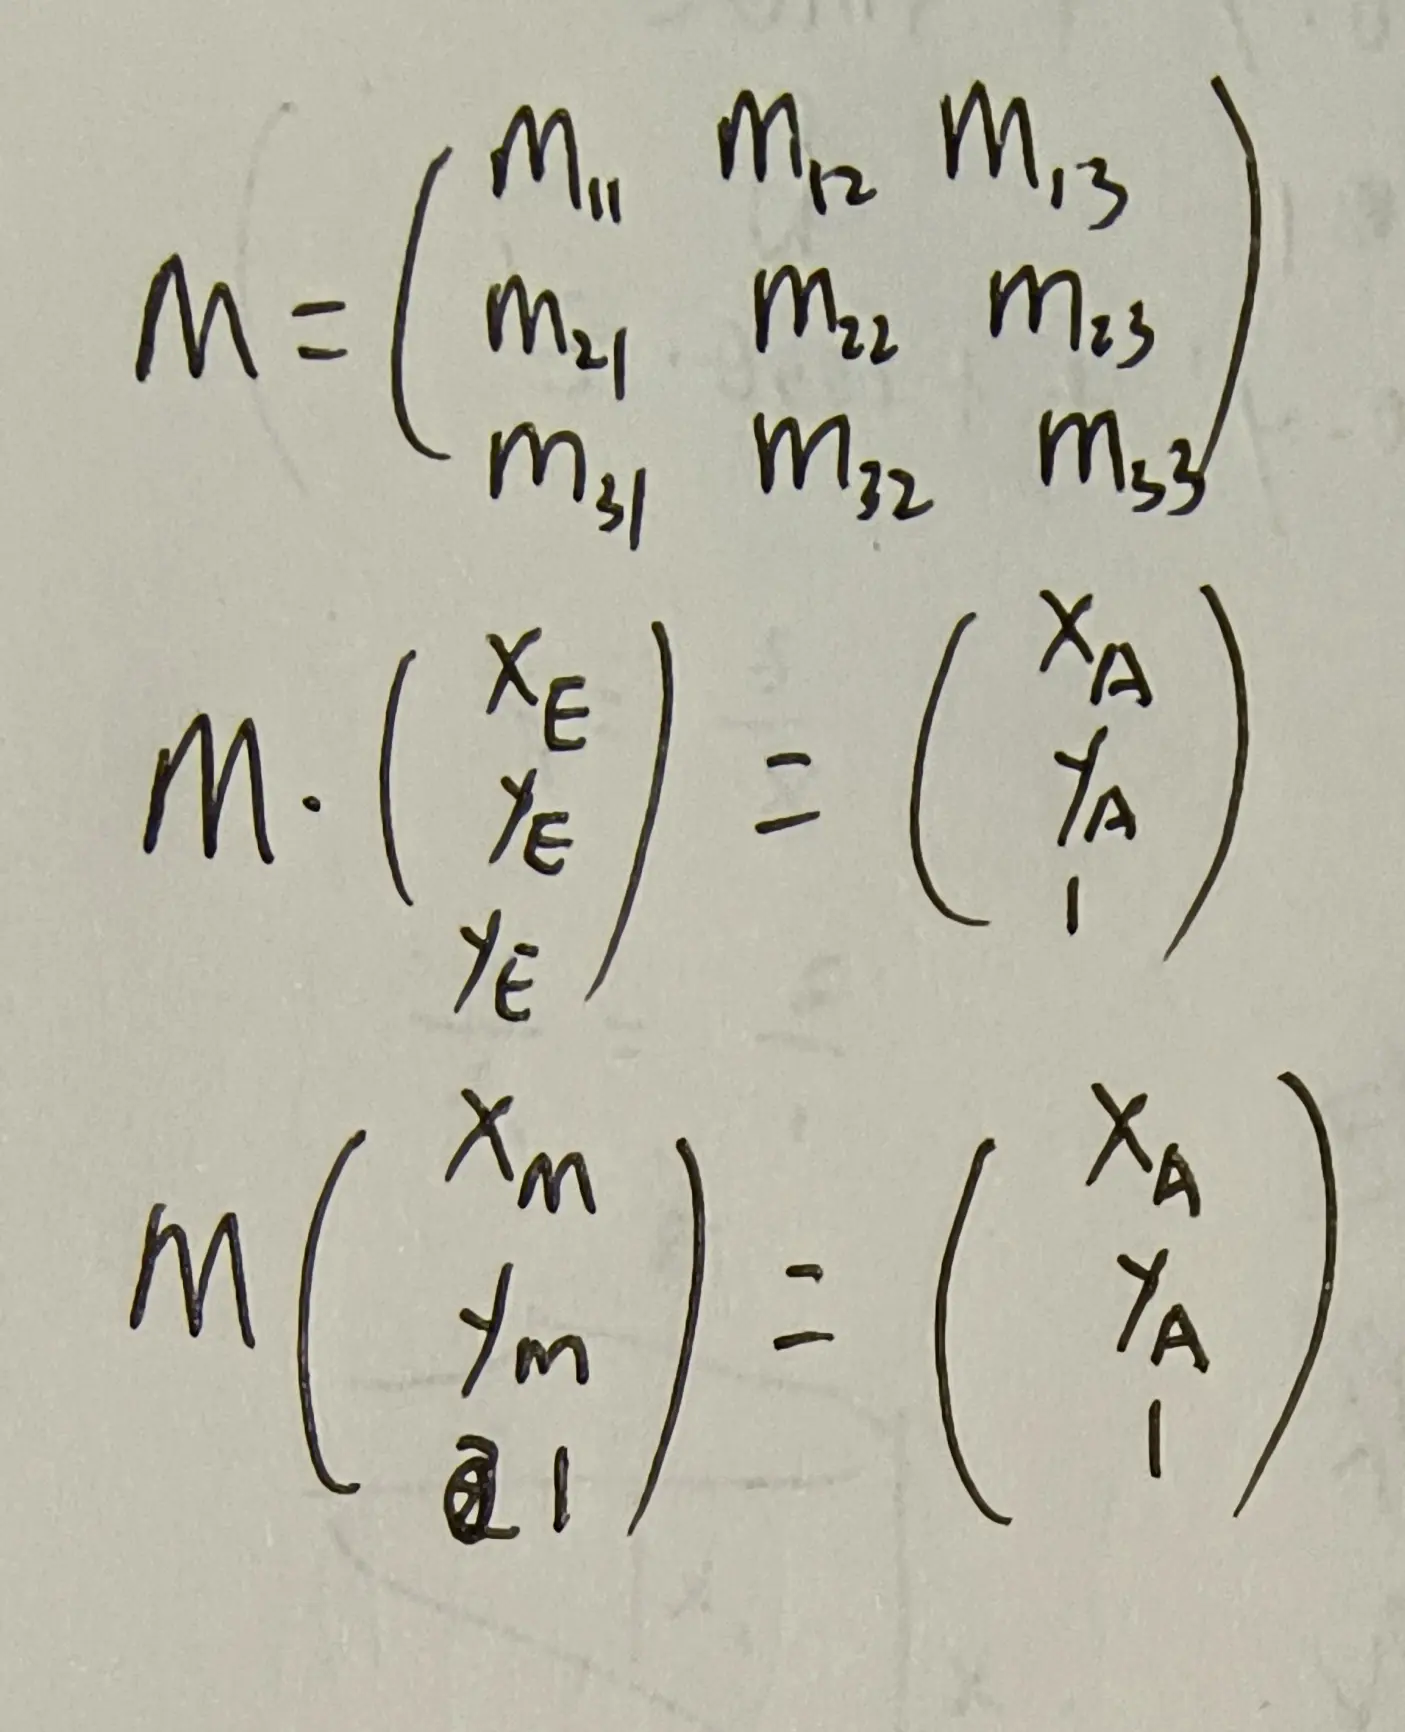 M = ( m₁₁ m₁₂ m₁₃
m₂₁ m₂₂ m₂₃
m₃₁ m₃₂ m₃₃ )
M · ( x_E y_E y_E ) = ( x_A y_A 1 )
M ( x_m y_m 1 ) = ( x_A y_A 1 )